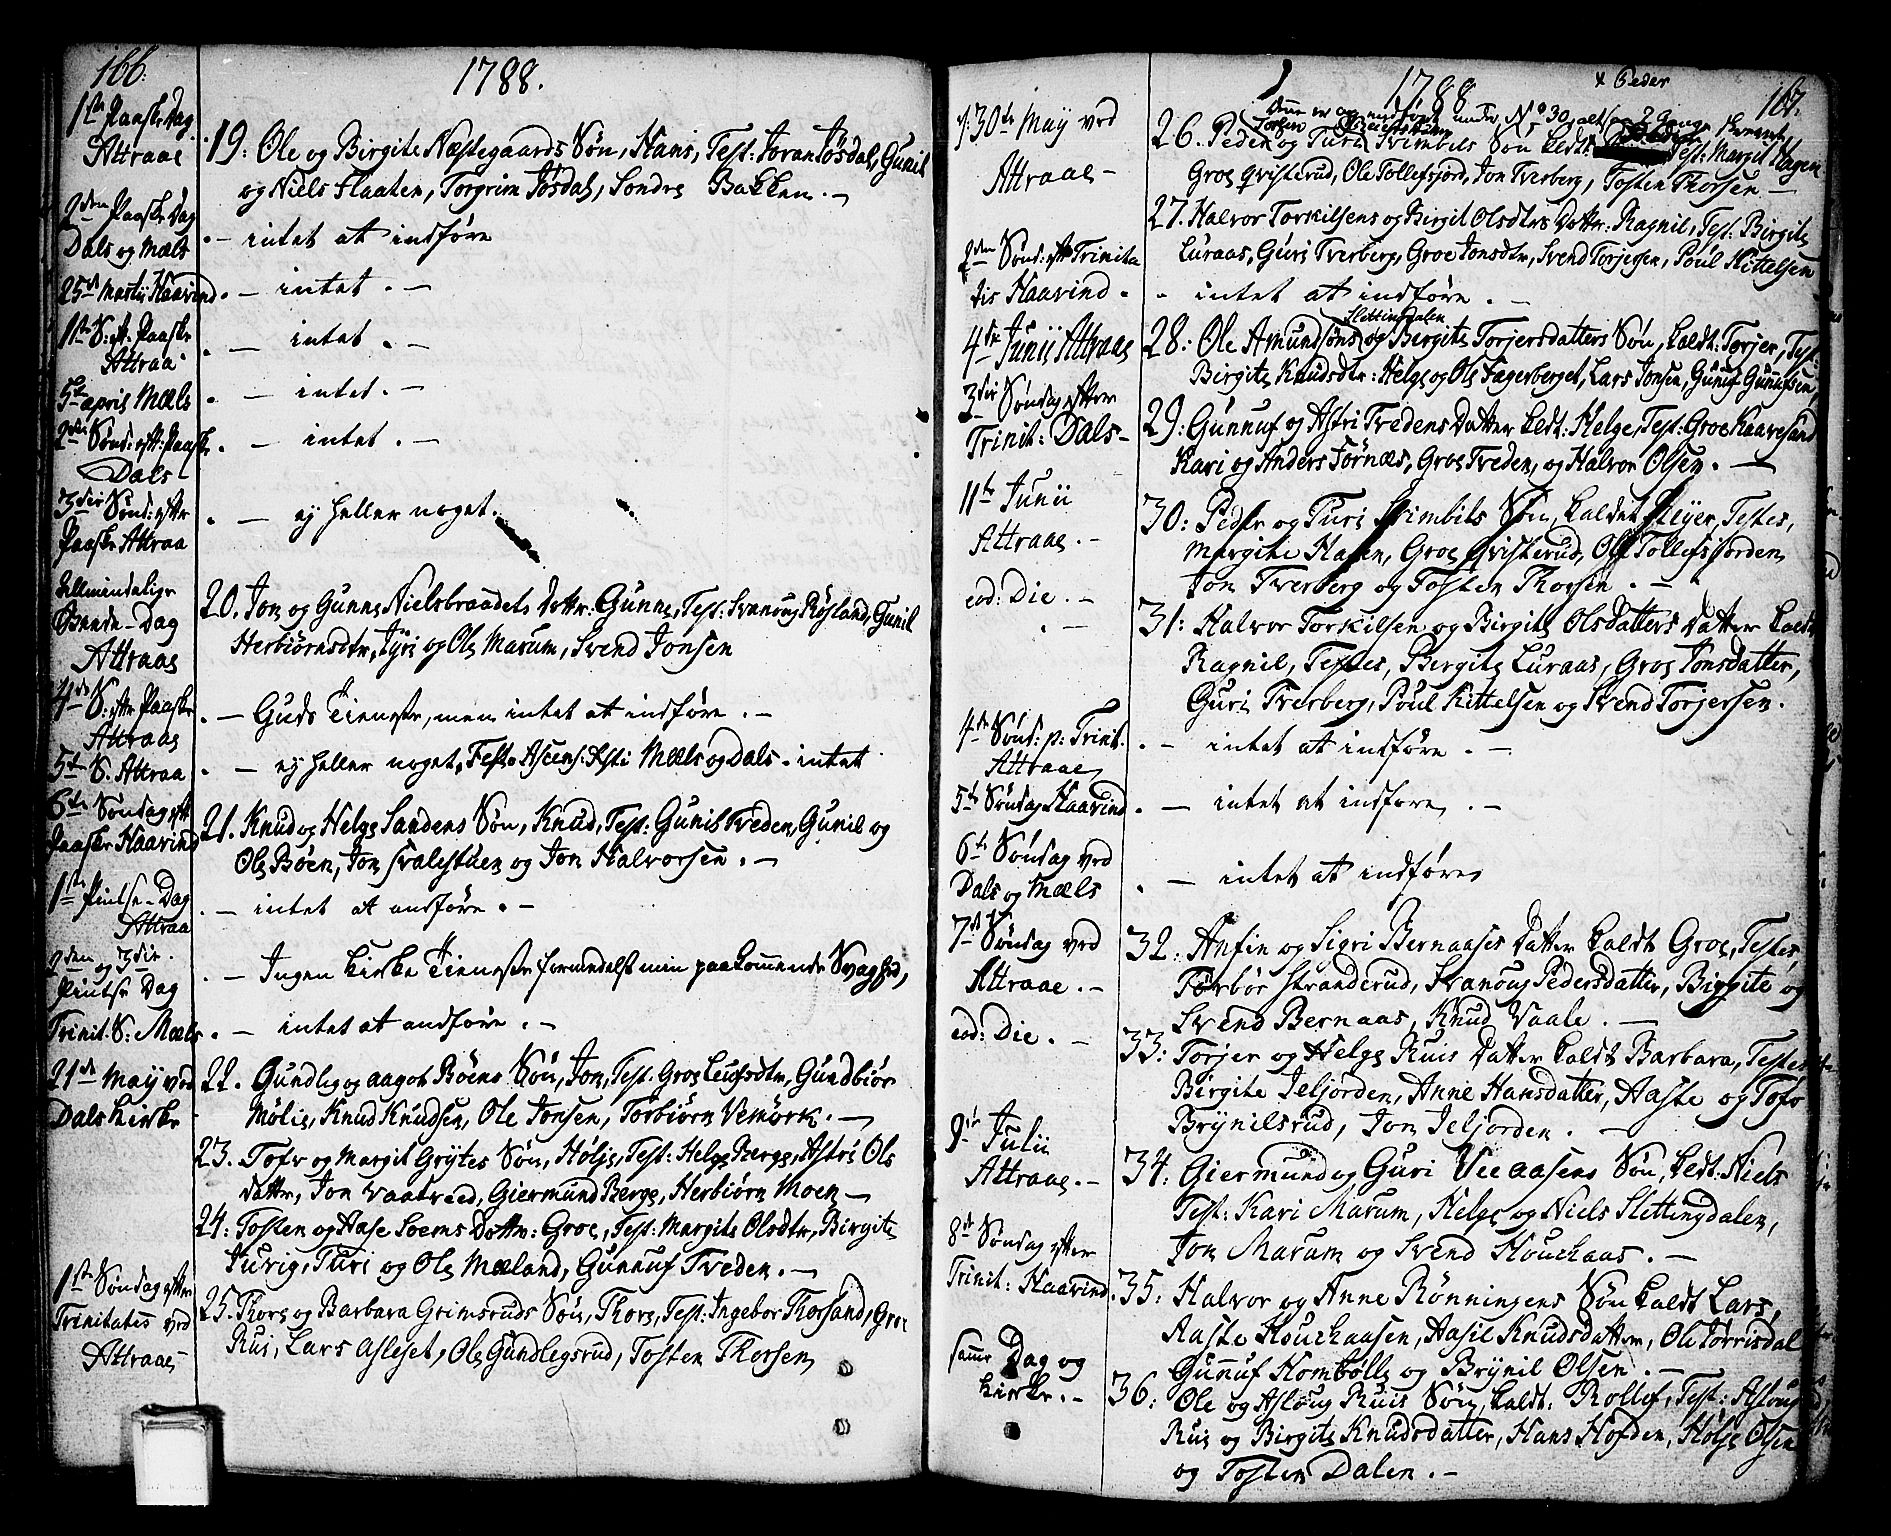 166.
1788.
1ste Paaske Dag
Attraae
19. Ole og Birgite Næstegaards Søn, Hans, Test: Joran Jøsdal, Gunil
og Niels Flaaten, Torgrim Jøsdal, Sondre Bakken. –
2den Paaske Dag
Dals og Mæls
– intet at indføre
25de Martii Haavind
– intet. –
1ste S: eft. Paaske
Attraa
– intet. –
5te april Mæls
– intet. –
2den Sønd: eft: Paaske
Dals
– intet. –
3die Sønd: efter
Paaske Attraa
– ej heller noget.
Allmindelige
Beede-Dag
Attraae
20. Jon og Gunne Nielsbraadets Dotter: Gunne, Test: Svanoug Røysland, Gunil
Herbiørnsdtr, Jyri og Ole Marum, Svend Jonsen
4de S: efter Paaske
Attraae
– Guds Tieneste, men intet at indføre. –
5te S. Attraa
– ej heller noget, Festo Ascens: Xsti Mæls og Dals. intet
6te Søndag eft
Paaske Haavind
21. Knud og Helge Sandens Søn, Knud, Test: Gunil Tveden, Gunil og
Ole Bøen, Jon Svalestuen og Jon Halvorsen. –
1ste Pintse-Dag
Attraa
– intet at anføre. –
2den og 3die
Pintse Dag
– Ingen Kirke Tieneste formedelst min paakommende Svaghed,
Trinit. S: Mæls
– intet at anføre. –
21de May ved
Dals Kirke
22. Gundleg og aagot Bøens Søn, Jon, Test. Groe Leufsdtr, Gundbiør
Møli, Knud Knudsen, Ole Jonsen, Torbiørn Vemork. –
23. Tofe og Margit Grytes Søn, Hølje, Test: Helge Berge, Astri Ols
datter, Jon Vaatveed, Giermund Berge, Herbiørn Moen –
24: Tosten og Aase Soems Dotter: Groe, Test: Margite Olsdtr, Birgite
Juvig, Turi og Ole Mæland, Gunnuf Tveden. –
1ste Søndag efter
Trinitates ved
Attraae
25. Thore og Barbara Grimsruds Søn, Thore, Test: Ingebor Thorsand, Groe
Rui, Lars Asleset, Ole Gundlegsrud, Tosten Thorsen
167.
1788
x Peder
d: 30te May ved
Attraae –
Denne er og indført under No 30, altsaa 2 Gange skrevet,
26. Peder og Turi Svimbels Søn kaldt: Test: Margit Hagen
Groe Qvisterud, Ole Tollefsjord, Jon Tverberg, Tosten Thorsen –
27. Halvor Torkilsens og Birgit Olsdtrs Dotter: Ragnil, Test: Birgite
Luraas, Guri Tverberg, Groe Jonsdtr, Svend Torjersen, Poul Kittelsen
2den Sønd: eft Trinita
tis Haavind.
– intet at indføre. –
4de Junii Attraae
Slettingdalen
28: Ole Amundsøns og Birgite Torjersdatters Søn, kaldt: Torjer, Test:
Birgite Knudsdtr: Helge og Ole Fagerberget, Lars Jonsen, Gunuf Gunufsen,
3die Søndag efter
Trinit: Dals –
29: Gunnuf og Astri Tvedens Datter kaldt: Helge, Test: Groe Kaavesand
Kari og Anders Førnæs, Groe Tveden, og Halvor Olsen. –
11te Junii
Attraae. –
30: Peder og Turi Svimbils Søn, kaldet Reijer, Testes,
Margite Hagen, Groe Qvisterud, Ole Tollefsjorden
Jon Tverberg og Tosten Thorsen. –
eod: Die. –
31: Halvor Torkilsen og Birgite Olsdatters Datter kaldt
Ragnil, Testes, Bergite Luraas, Groe Jonsdatter,
Guri Tverberg, Poul Kittelsen og Svend Torjersen.
4de Sønd: p: Trinit.
Attraae
– intet at indføre. –
5te Søndag Haavind
– intet at indføre. –
6te Søndag ved
Dals og Mæls
– intet at indføre
7de Søndag ved
Attraae. –
32. Anfin og Sigri Bernaases Datter kaldt Groe, Testes,
Torbør Stranderud, Svanoug Pedersdatter, Birgite og
Svend Bernaas, Knud Vaale. –
eod: Die. –
33: Torjer og Helge Ruis Datter kaldt Barbara, Testes
Birgite Jeljorden, Anne Hansdatter, Aaste og Tofe
Brynilsrud, Jon Jeljorden. –
9de Julii
Attraae. –
34: Giermund og Guri Veeaasens Søn, kaldt: Niels
Test: Kari Marum, Helge og Niels Slettingdalen,
Jon Marum og Svend Houekaas. –
8de Søndag efter
Trinit: Haavind.
35: Halvor og Anne Rønningens Søn kaldt Lars,
Aaste Houekaasen, Aasil Knudsdatter, Ole Tørrisdal
Gunnuf Hombølle og Brynil Olsen. –
samme Dag og
Kirke. –
36: Ole og Asloug Ruis Søn, kaldt: Rollef, Test: Asloug
Rui og Birgite Knudsdatter, Hans Hofden, Hølje Olsen
og Tosten Dalen. –